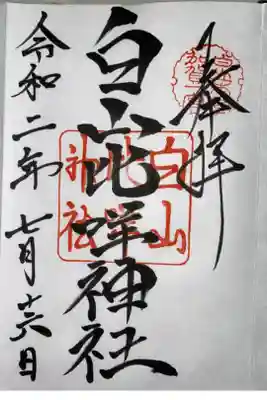 奉拝
白山比咩神社
令和二年七月十六日
白山
神社